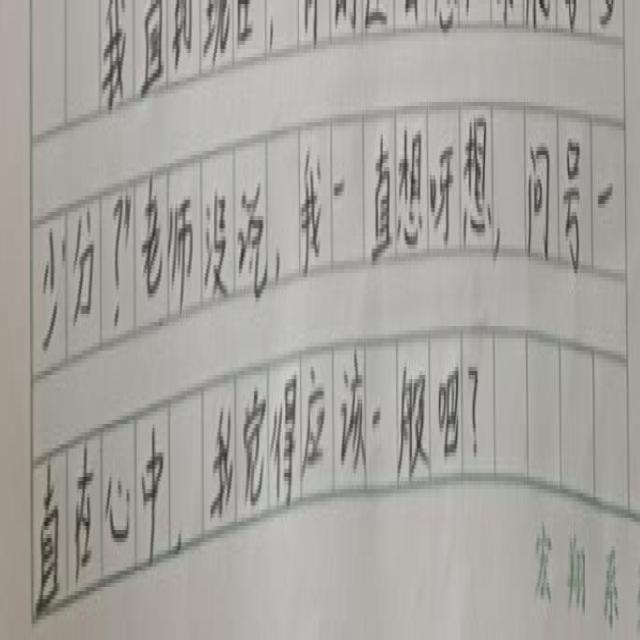 少分?"老师没说,我一直想呀想,问号一
直在心中,我觉得应该一般吧?
宏翔系